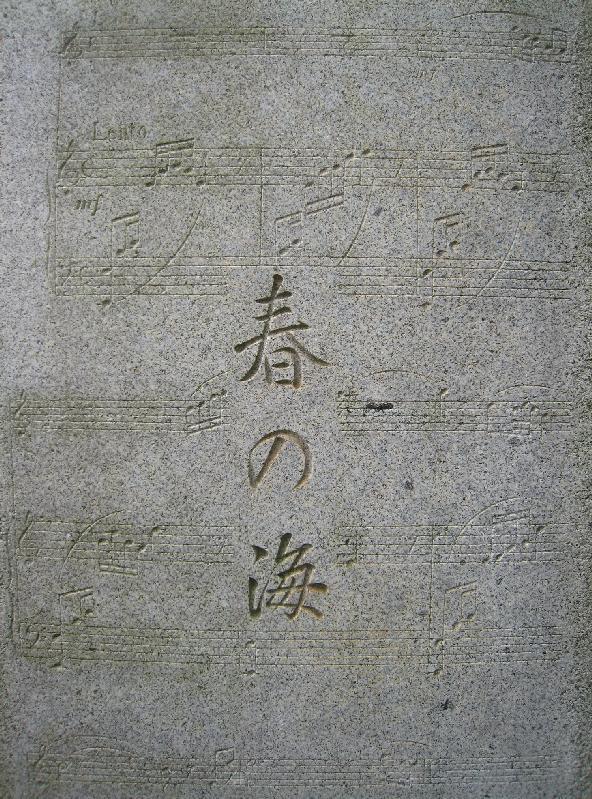 mf
Lento
mf
春の海